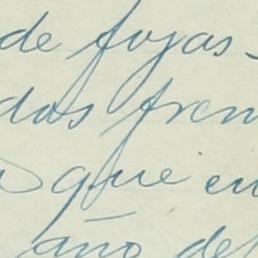 de fojas
das fren
que en
año del